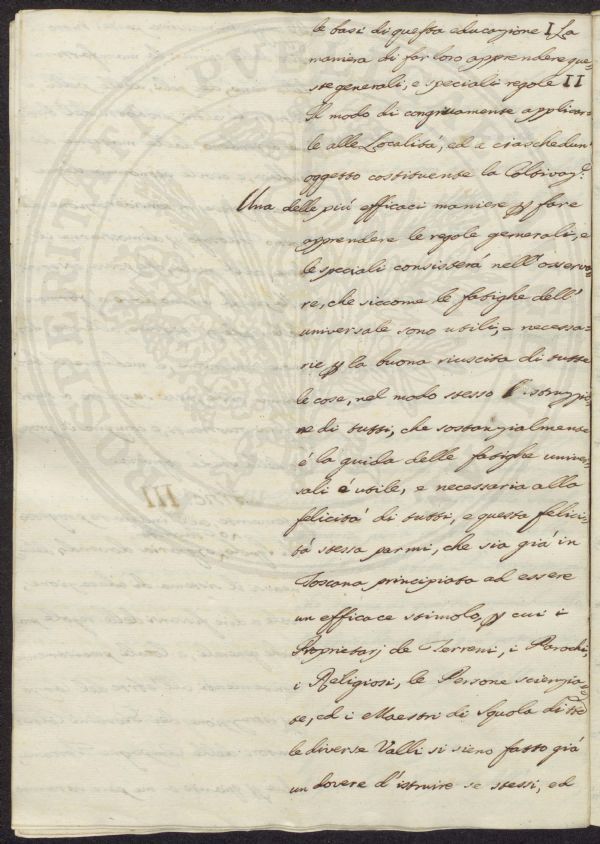 le basi di questa educazione I La
maniera di far loro apprendere que=
ste generali, e speciali regole II
Il modo di congruamente applicar=
le alle Località, ed a ciaschedun'
oggetto costituente la Coltivaz.e
Una delle più efficaci maniere p fare
apprendere le regole generali, e
le speciali consisterà nell'osserva=
re, che siccome le fatighe dell'
universale sono utili, e necessa=
rie p la buona riuscita di tutte
le cose, nel modo stesso l'istruzio=
ne di tutti, che sostanzialmente
è la guida delle fatighe univer=
sali è utile, e necessaria alla
felicità di tutti, e questa felici=
tà stessa parmi, che sia già in
Toscana principiata ad essere
un efficace stimolo, p cui i
Proprietarj de Terreni, i Parochi,
i Religiosi, le Persone scienzia=
te, ed i Maestri di Squola di
le diverse Valli si sieno fatto già
un dovere d'istruire se stessi, ed
III
PROSPERITATI PVBLICAE